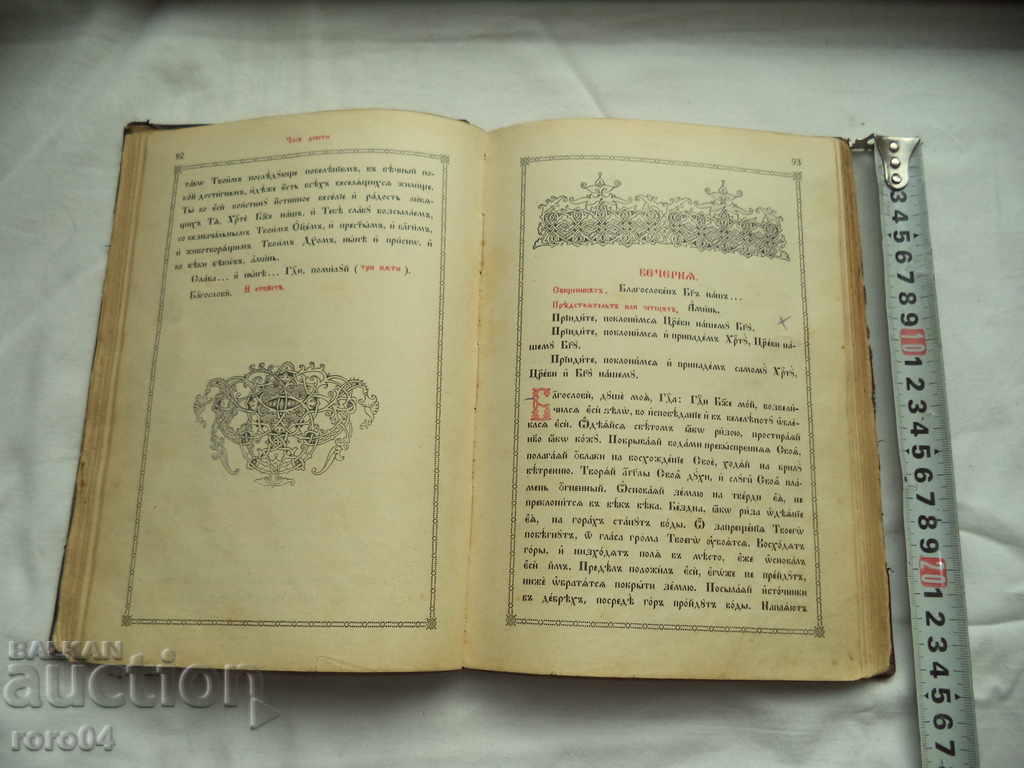 Часъ девѧты
92
такѡ Твои́мъ послѣ́дꙋюще повелѣ́нїємъ, въ вѣ́чный по-
ко́й дости́гнемъ, и҆дѣ́же є҆́сть всѣ́хъ веселѧ́щихсѧ жили́ще.
Ты́ бо є҆сѝ вои́стинꙋ и҆́стинное весе́лїе и҆ ра́дость лю́бѧ-
щихъ Тѧ̀, Хр҃тѐ Бж҃е на́шъ, и҆ Тебѣ̀ сла́вꙋ возсыла́емъ,
со безнача́льнымъ Твои́мъ Ѻ҆ц҃е́мъ, и҆ прест҃ы́мъ, и҆ бл҃ги́мъ,
и҆ животворѧ́щимъ Твои́мъ Дх҃омъ, ны́нѣ и҆ при́снѡ, и҆
во вѣ́ки вѣкѡ́въ, а҆ми́нь.
Сла́ва... и҆ ны́нѣ... Гд҇и, поми́лꙋй (три пѫти).
Бл҃гословѝ. И отпꙋстъ.
93
ВЕЧЕРНѦ.
Свѧщенникътъ. Благослове́нъ Бг҃ъ на́шъ...
Предстоѧтельтъ или четецътъ. А҆ми́нь.
Прїиди́те, поклони́мсѧ Цр҃е́ви на́шемꙋ Бг҃ꙋ.
Прїиди́те, поклони́мсѧ и҆ припаде́мъ Хр҃тꙋ̀, Цр҃е́ви на́-
шемꙋ Бг҃ꙋ.
Прїиди́те, поклони́мсѧ и҆ припаде́мъ самомꙋ̀ Хр҃тꙋ̀,
Цр҃е́ви и҆ Бг҃ꙋ на́шемꙋ.
Бл҃гословѝ, дꙋшѐ моѧ̀, Гд҇а: Гд҇и Бж҃е мо́й, возвели́-
чилсѧ є҆сѝ ѕѣлѡ̀, во и҆сповѣ́данїе и҆ въ велелѣ́потꙋ ѡ҆бле́-
клсѧ є҆сѝ. Ѡ҆дѣѧ́йсѧ свѣ́томъ ꙗ҆́кѡ ри́зою, простира́ѧй
не́бо ꙗ҆́кѡ ко́жꙋ. Покрыва́ѧй вода́ми превы́спреннѧѧ Своѧ̀,
полага́ѧй ѻ҆́блаки на восхожде́нїе Своѐ, ходѧ́й на крилꙋ̀
вѣ́треннюю. Творѧ́й а҆́гг҃лы Своѧ̀ дꙋ́хи, и҆ слꙋги̑ Своѧ̀ пла́-
мень ѻ҆́гненный. Ѡ҆снова́ѧй зе́млю на тве́рди є҆ѧ̀, не
преклони́тсѧ въ вѣ́къ вѣ́ка. Бе́здна, ꙗ҆́кѡ ри́за ѡ҆дѣѧ́нїе
є҆ѧ̀, на гора́хъ ста́нꙋтъ во́ды. Ѿ запреще́нїѧ Твоегѡ̀
побѣ́гнꙋтъ, ѿ гла́са гро́ма Твоегѡ̀ ᲂу҆боѧ́тсѧ. Восхо́дѧтъ
го́ры, и҆ низхо́дѧтъ полѧ̀ въ мѣ́сто, є҆́же ѡ҆снова́лъ
є҆сѝ и҆̀мъ. Предѣ́лъ положи́лъ є҆сѝ, є҆гѡ́же не пре́йдꙋтъ,
нижѐ ѡ҆братѧ́тсѧ покры́ти зе́млю. Посыла́ѧй и҆сто́чники
въ де́брехъ, посредѣ̀ го́ръ про́йдꙋтъ во́ды. Напаѧ́ютъ
3 4 5 6 7 8 9 10 1 2 3 4 5 6 7 8 9 20 1 2 3 4 5 6 7
BALKAN
auction
roro04